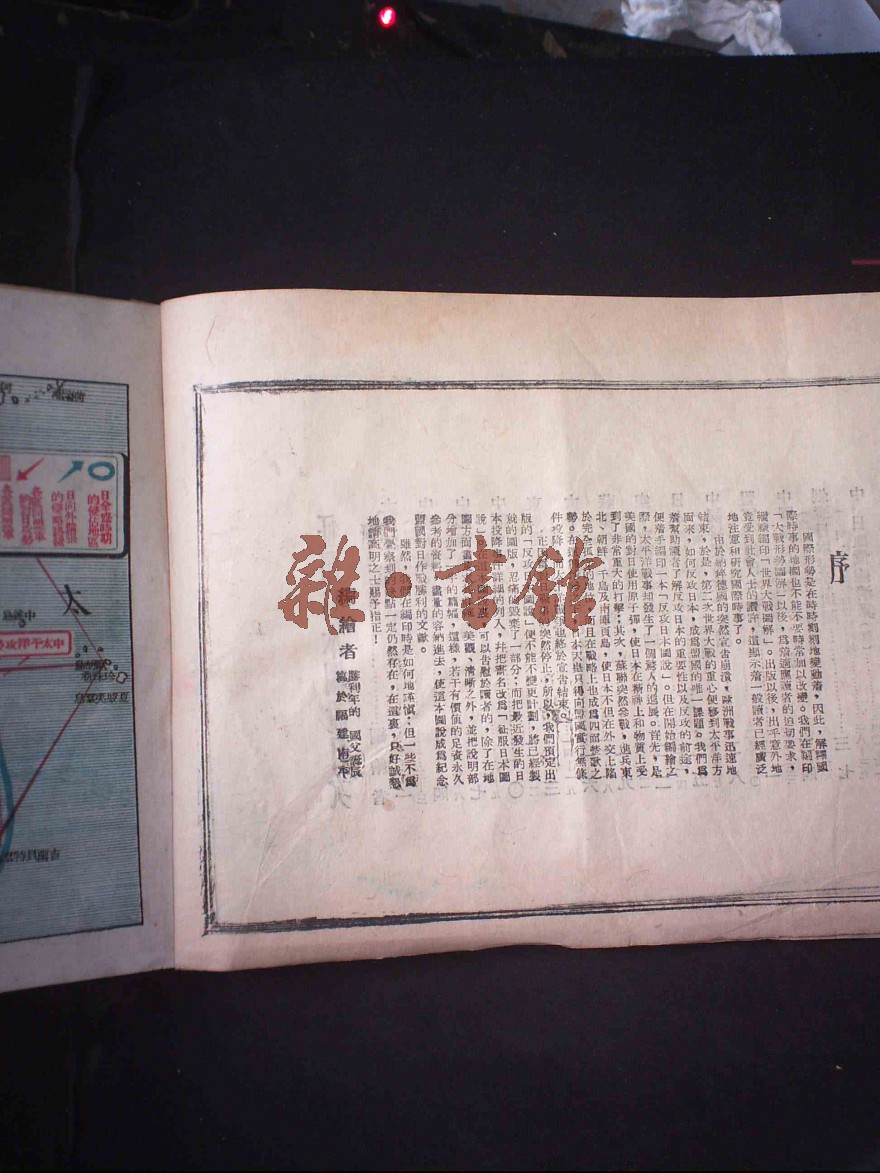 序
國際形勢是在時時刻刻地變動着，因此，解釋國
際時事的地圖也不能不要時常加以改變。我們在編印
「大戰形勢圖解」以後，爲着適應讀者的迫切要求，
編印「世界大戰圖解」。出版以後，出乎意外地
竟受到社會人士的讚許，這顯示着一般讀者已經廣泛
地注意和研究國際時事了。
由於納粹德國的突然宣告崩潰，歐洲戰事迅速地
結束，於是，第二次世界大戰的重心便移到太平洋方
面來，如何反攻日本，成爲盟國的唯一課題。我們爲
着幫助讀者了解反攻日本的重要性以及反攻的前途，
便着手編印一本「反攻日本圖說」。但在開始編繪之
際，太平洋戰事却發生了一個驚人的進展。首先，是
美國的對日使用原子彈，使日本在精神上和物質上受
到了非常重大的打擊；其次，蘇聯突然參戰，進兵東
北、朝鮮、千島及南庫頁島，使日本不但在外交上陷
於完全孤立的地位，而且在戰略上也成爲四面楚歌之
勢。在這日本天皇只得向盟國實行無條
件投降，戰事也終於宣告結束。
正因爲突然停止，所以，我們預定出
版的「反攻日本圖說」便不能不變更計劃，將已經製
就的圖版，忍痛地毀棄了一部分；而把最近發生的日
本投降詳細的列入，幷把書名改爲「征服日本圖
說」。在這本圖說裏，可以告慰於讀者的，除了在地
圖方面盡美觀、清晰之外，並把說明部
分增加了的篇幅，這樣，若干有價值的足資永久
參考的資料盡量的容納進去，使這本圖說成爲紀念
盟國對日作戰勝利的文獻。
雖然，我們在編印時是如何地謹慎；但一些不爲
我們覺察到的缺點一定仍然存在，在這裏，只好誠懇
地請高明之士賜予指正！
編繪者 勝利年的 國父誕辰
寫於福建南平
太
日全盛時期
的侵佔地區
日向外擴張
的侵略路線
中太平洋攻
中途島
夏威夷羣島
珍珠港
雜·書館